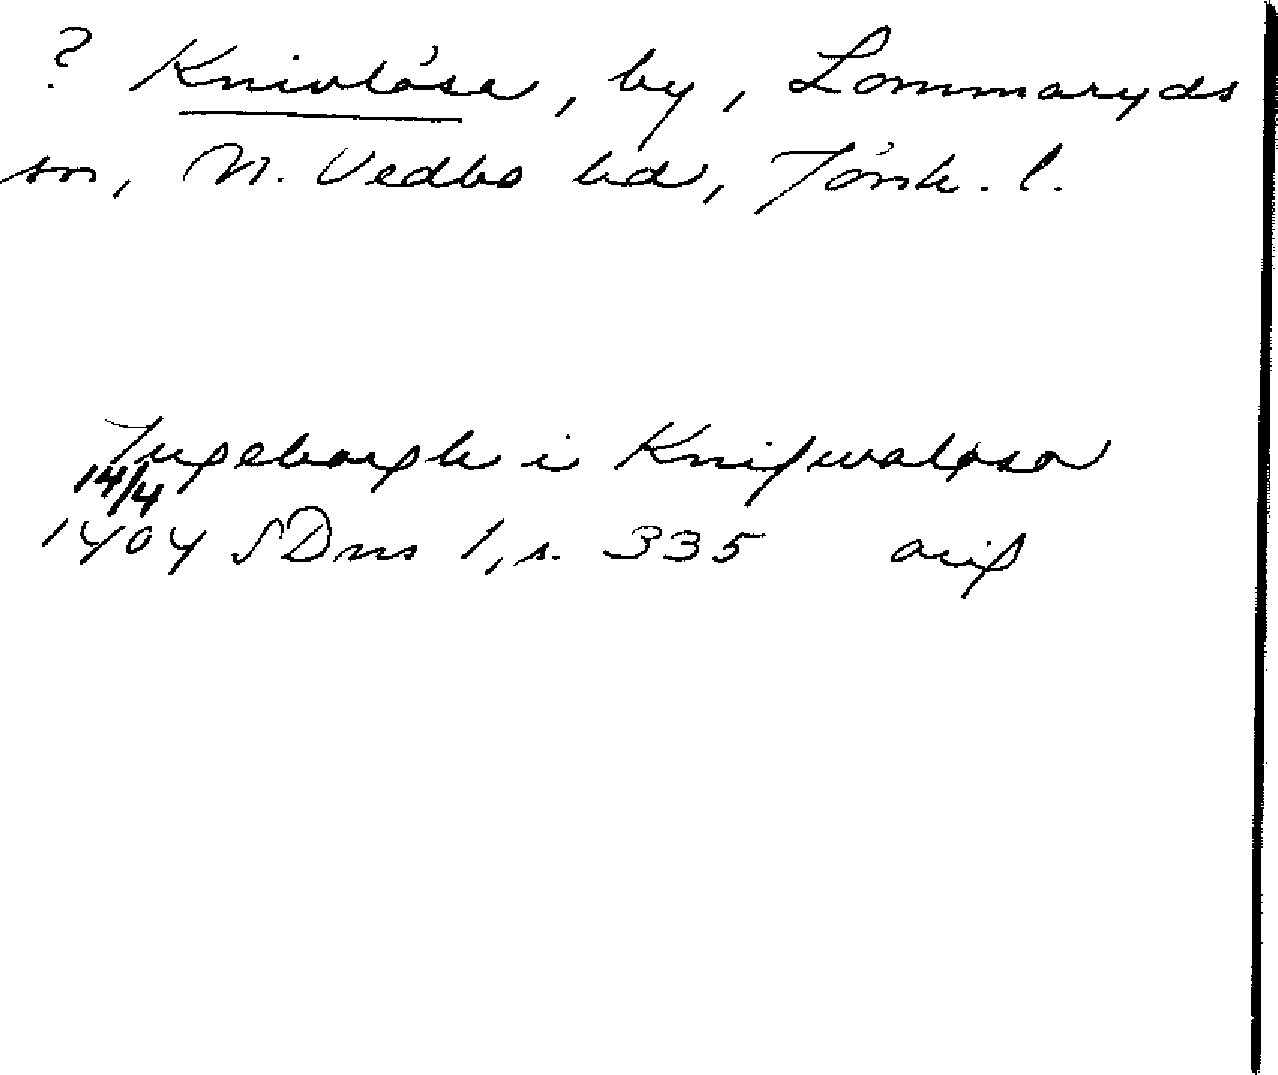 ? Knivlösa, by, Lommaryds
sn, N. Vedbo hd, Jönk. l.
Ingeborgh i Knifwaløsa
14/4
1404 SDns 1, s. 335 orig